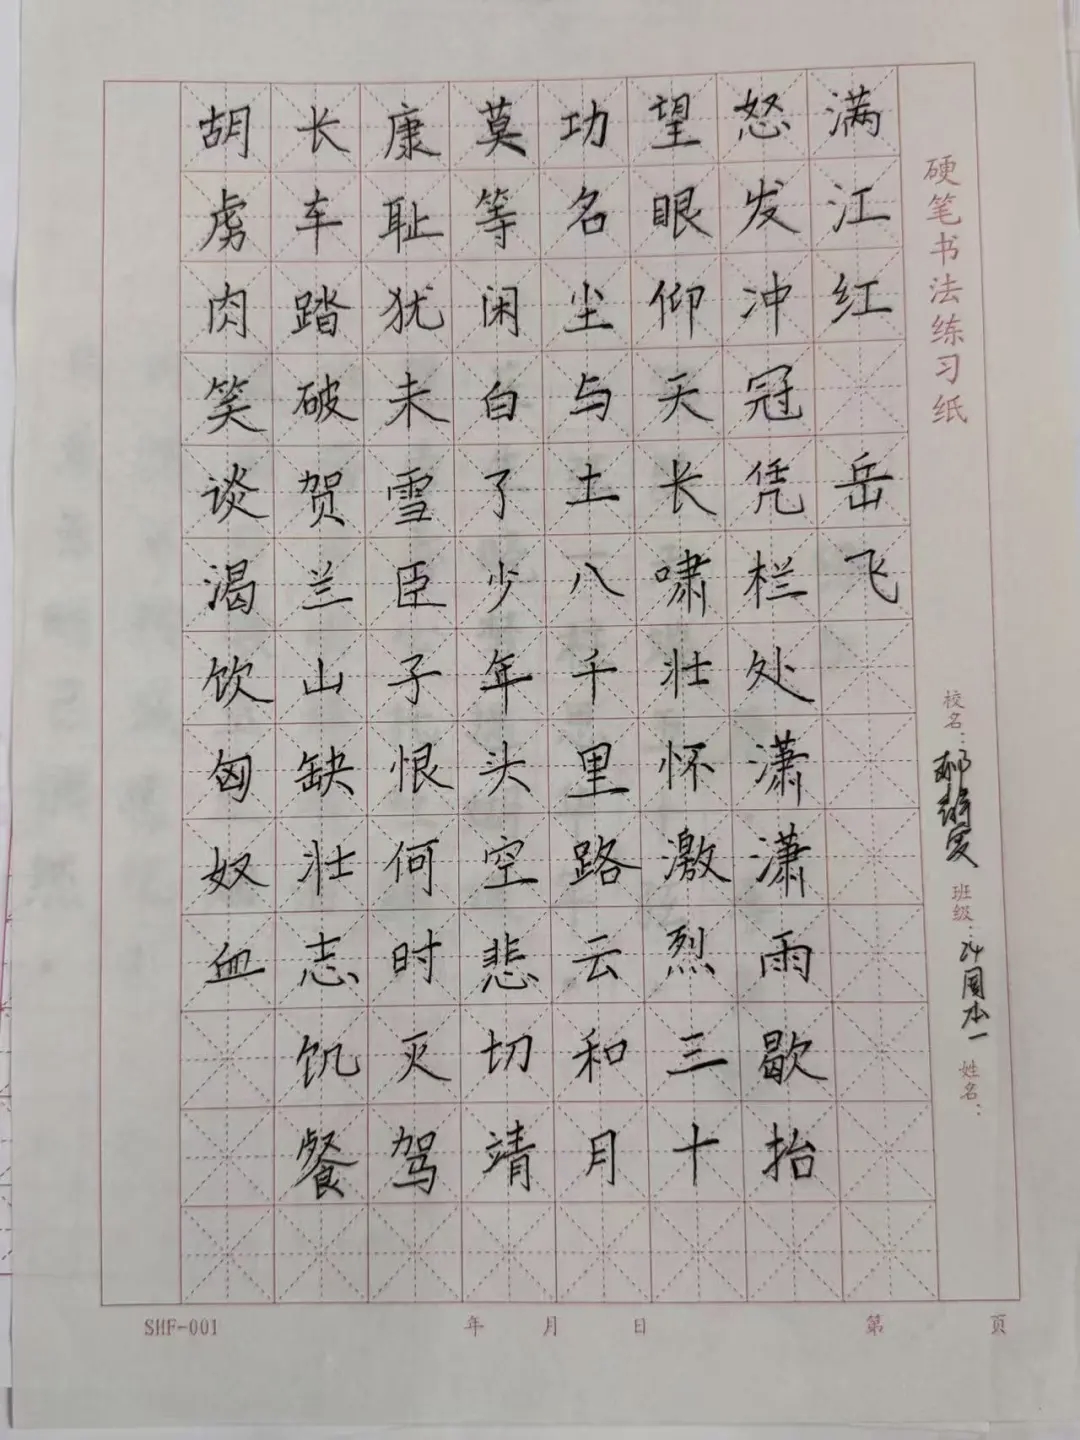 硬笔书法练习纸
校名：
班级：24国本一
姓名：
满江红 岳飞
怒发冲冠凭栏处潇潇雨歇抬
望眼仰天长啸壮怀激烈三十
功名尘与土八千里路云和月
莫等闲白了少年头空悲切靖
康耻犹未雪臣子恨何时灭驾
长车踏破贺兰山缺壮志饥餐
胡虏肉笑谈渴饮匈奴血
SHF-001 年 月 日 第 頁